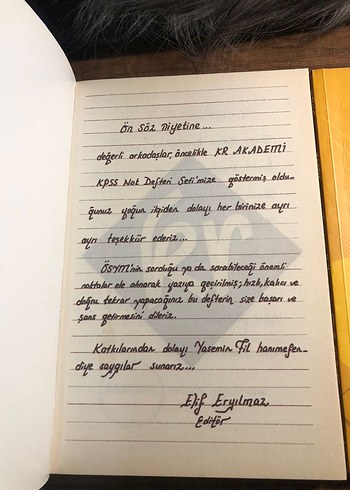 Ön Söz Niyetine...
değerli arkadaşlar, öncelikle KR AKADEMİ
KPSS Not Defteri Seti'mize göstermiş oldu-
ğunuz yoğun ilgiden dolayı her birinize ayrı
ayrı teşekkür ederiz...
ÖSYM'nin sorduğu ya da sorabileceği önemli
noktalar ele alınarak yazıya geçirilmiş; hızlı, kalıcı ve
doğru tekrar yapacağınız bu defterin size başarı ve
şans getirmesini dileriz.
Katkılarından dolayı Yasemin Fil hanımefen-
diye saygılar sunarız...
Elif Eryılmaz
Editör